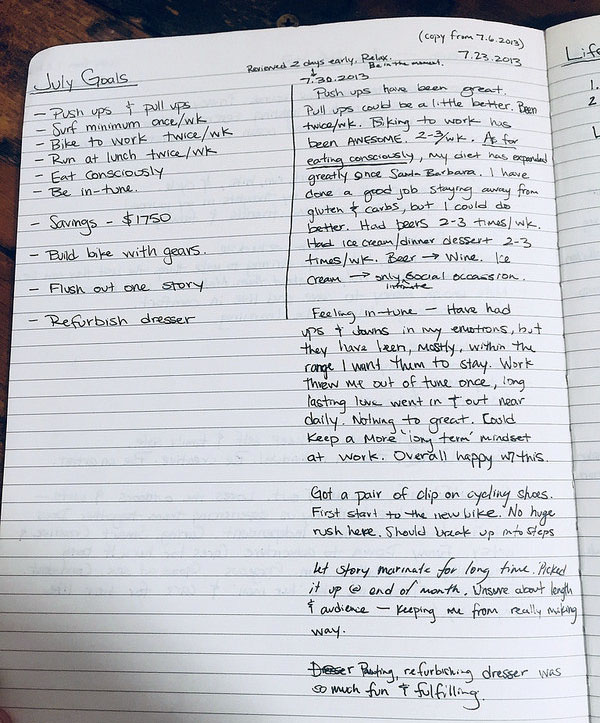 (copy from 7.6.2013)
Reviewed 2 days early. Relax.
Be in the moment.
7.23.2013
July Goals
7.30.2013
- Push ups & pull ups
- Surf minimum once/wk
- Bike to work twice/wk
- Run at lunch twice/wk
- Eat Consciously
- Be in-tune.
- Savings - $1750
- Build bike with gears.
- Flush out one story
- Refurbish dresser
Push ups have been great.
Pull ups could be a little better. Been
twice/wk. Biking to work has
been AWESOME. 2-3/wk. As for
eating consciously, my diet has expanded
greatly since Santa Barbara. I have
done a good job staying away from
gluten & carbs, but I could do
better. Had beers 2-3 times/wk.
Had ice cream/dinner dessert 2-3
times/wk. Beer → Wine. Ice
cream → only social occassion.
intimate
Feeling in-tune - Have had
ups & downs in my emotions, but
they have been, mostly, within the
range I want them to stay. Work
threw me out of tune once, long
lasting love went in & out near
daily. Nothing to great. Could
keep a more 'long term' mindset
at work. Overall happy w/ this.
Got a pair of clip on cycling shoes.
First start to the new bike. No huge
rush here. Should break up into steps
Let story marinate for long time. Picked
it up @ end of month. Unsure about length
& audience - keeping me from really making
way.
Dresser Painting, refurbishing dresser was
so much fun & fulfilling.
Life
1.